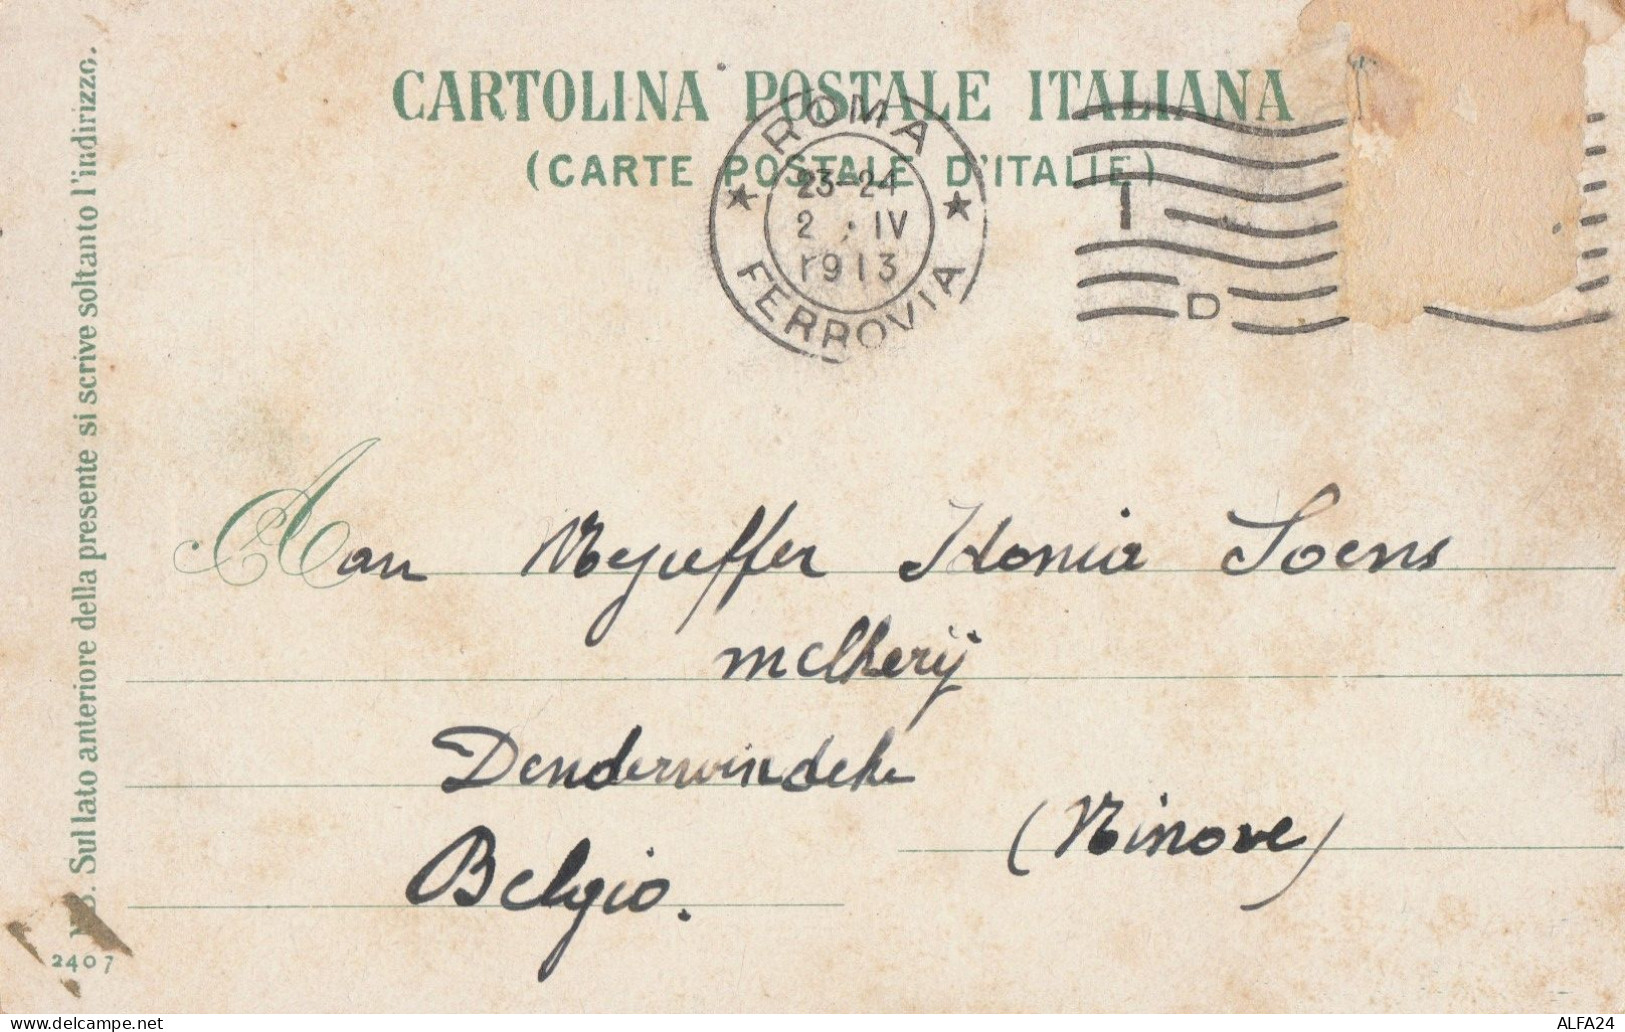 CARTOLINA POSTALE ITALIANA
(CARTE POSTALE D'ITALIE)
ROMA
23-24
2 · IV
1913
FERROVIA
I
D
Aan Mejuffer Idonia Soens
melkerij
Denderwindeke
(Ninove)
Belgio.
N. B. Sul lato anteriore della presente si scrive soltanto l'indirizzo.
2407
delcampe.net
ALFA24